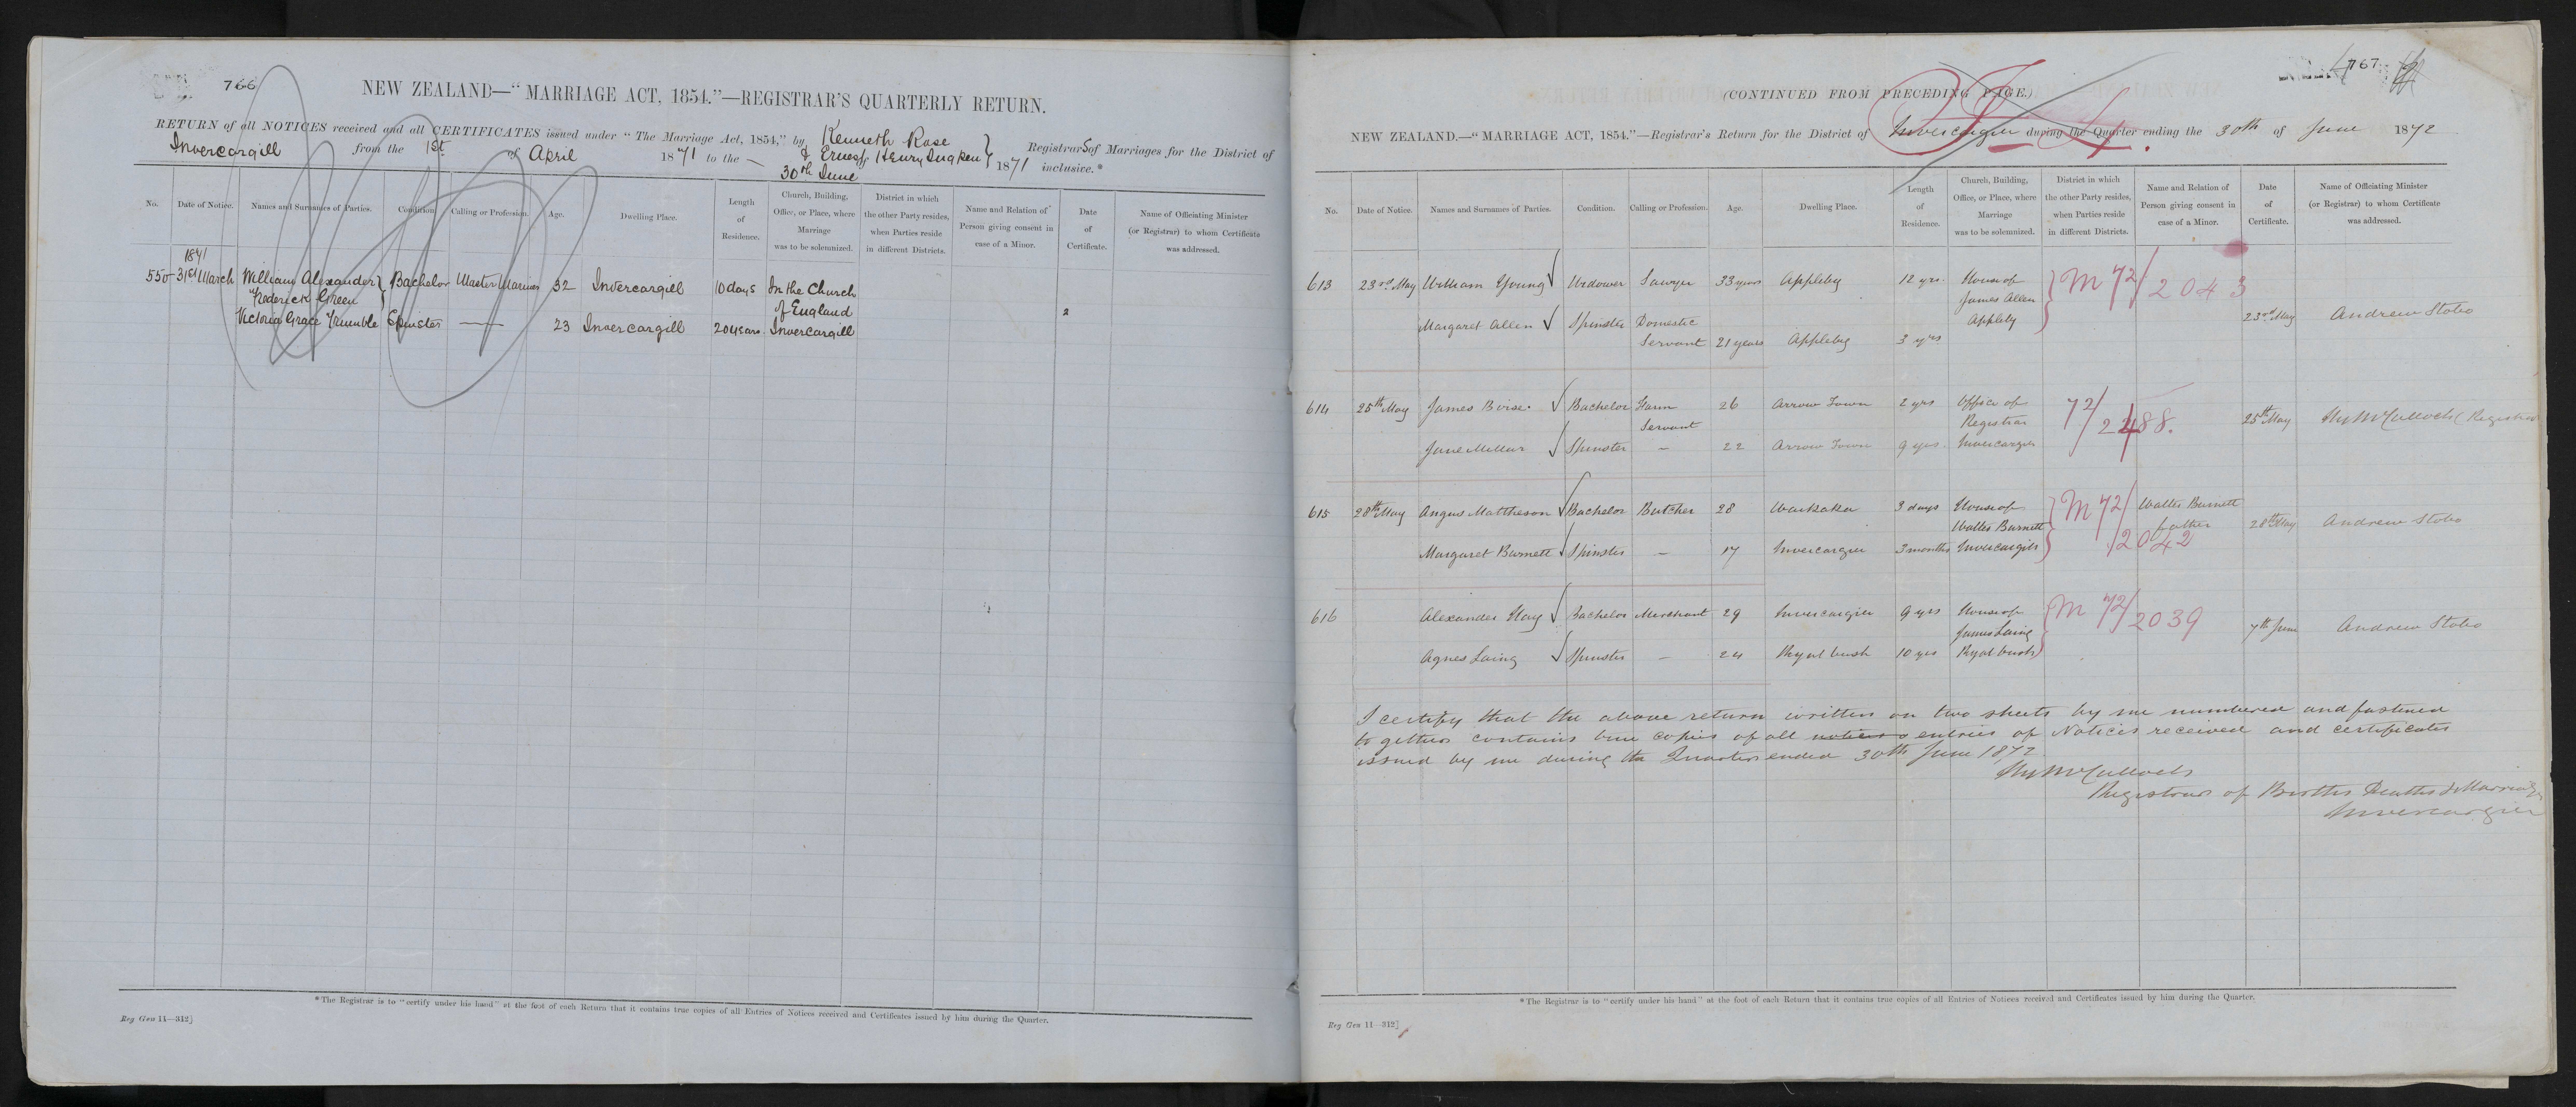 766
NEW ZEALAND—“MARRIAGE ACT, 1854.”—REGISTRAR'S QUARTERLY RETURN.
RETURN of all NOTICES received and all CERTIFICATES issued under “The Marriage Act, 1854,” by Kenneth Rose
& Ernest Henry Registrars of Marriages for the District of
Invercargill from the 1st of April 1871 to the — 30th June 1871 inclusive.*
No. Date of Notice. Names and Surnames of Parties. Condition. Calling or Profession. Age. Dwelling Place. Length of Residence. Church, Building, Office, or Place, where Marriage was to be solemnized. District in which the other Party resides, when Parties reside in different Districts. Name and Relation of Person giving consent in case of a Minor. Date of Certificate. Name of Officiating Minister (or Registrar) to whom Certificate was addressed.
1871
550 31st March William Alexander Bachelor Master Mariner 32 Invercargill 10 days In the Church
Frederick Green of England
Victoria Grace Trumble Spinster — 23 Invercargill 20 years. Invercargill
2
*The Registrar is to “certify under his hand” at the foot of each Return that it contains true copies of all Entries of Notices received and Certificates issued by him during the Quarter.
Reg Gen 11—312]
767
(CONTINUED FROM PRECEDING PAGE.)
NEW ZEALAND.—“MARRIAGE ACT, 1854.”—Registrar's Return for the District of Invercargill during the Quarter ending the 30th of June 1872
No. Date of Notice. Names and Surnames of Parties. Condition. Calling or Profession. Age. Dwelling Place. Length of Residence. Church, Building, Office, or Place, where Marriage was to be solemnized. District in which the other Party resides, when Parties reside in different Districts. Name and Relation of Person giving consent in case of a Minor. Date of Certificate. Name of Officiating Minister (or Registrar) to whom Certificate was addressed.
613 23rd May William Young Widower Sawyer 33 years Appleby 12 yrs. House of M 72/2043
James Allen
Margaret Allen Spinster Domestic Appleby 23rd May Andrew Stobo
Servant 21 years Appleby 3 yrs
614 25th May James Boise Bachelor Farm 26 Arrow Town 2 yrs Office of 72/2488. 25th May Hy McCulloch (Registrar
Servant Registrar
Jane Millar Spinster — 22 Arrow Town 9 yrs. Invercargill
615 28th May Angus Mattheson Bachelor Butcher 28 Waikaka 3 days House of M 72/2042 Walter Burnett
Walter Burnett father 28th May Andrew Stobo
Margaret Burnett Spinster — 17 Invercargill 3 months Invercargill
616 Alexander Hay Bachelor Merchant 29 Invercargill 9 yrs House of M 72/2039
James Laing 7th June Andrew Stobo
Agnes Laing Spinster — 24 Ryal bush 10 yrs Ryal bush
I certify that the above return written on two sheets by me numbered and fastened
to gether contains true copies of all notices entries of Notices received and certificates
issued by me during the Quarter ended 30th June 1872.
Hy McCulloch
Registrar of Births Deaths & Marriages
Invercargill
*The Registrar is to “certify under his hand” at the foot of each Return that it contains true copies of all Entries of Notices received and Certificates issued by him during the Quarter.
Reg Gen 11—312]